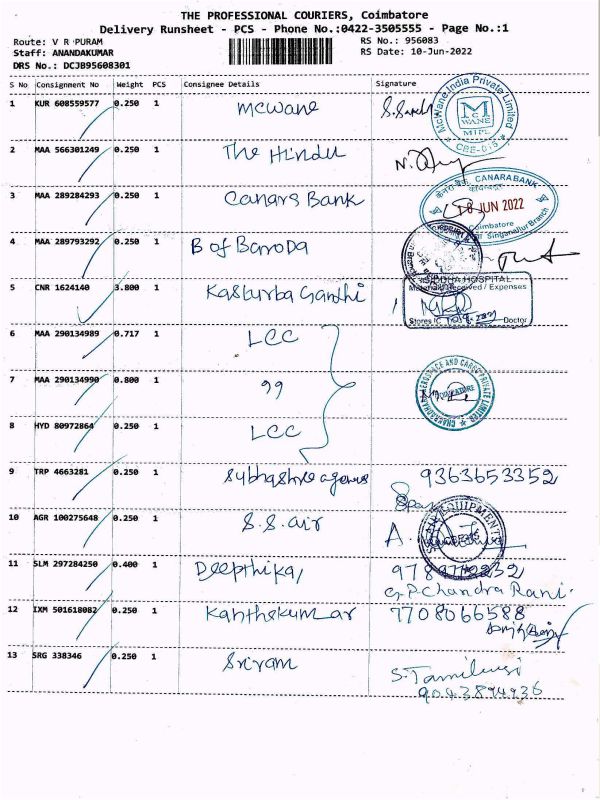 THE PROFESSIONAL COURIERS, Coimbatore
Delivery Runsheet - PCS - Phone No.:0422-3505555 - Page No.:1
Route: V R PURAM
RS No.: 956083
Staff: ANANDAKUMAR
RS Date: 10-Jun-2022
DRS No.: DCJB95608301
S No Consignment No Weight PCS Consignee Details Signature
1 KUR 608559577 0.250 1 Mcwane
McWane India Private Limited
M C WANE
MIPL
CBE-015
2 MAA 566301249 0.250 1 The Hindu
3 MAA 289284293 0.250 1 Canara Bank
CANARA BANK
JUN 2022
Coimbatore
Singanallur Branch
4 MAA 289793292 0.250 1 B of Barroda
5 CNR 1624140 3.800 1 Kasturba Gandhi
HOSPITAL
Material Received / Expenses
Stores I/C Doctor
6 MAA 290134989 0.717 1 LCC
7 MAA 290134990 0.800 1 99
8 HYD 80972864 0.250 1 LCC
9 TRP 4663281 0.250 1 9363653352
10 AGR 100275648 0.250 1 S.S. air
EQUIPMENTS
11 SLM 297284250 0.400 1 Deepthika,
G.P. Chandra Rani
12 IXM 501618082 0.250 1 Kanthakumar 7708066588
13 SRG 338346 0.250 1 Sriram